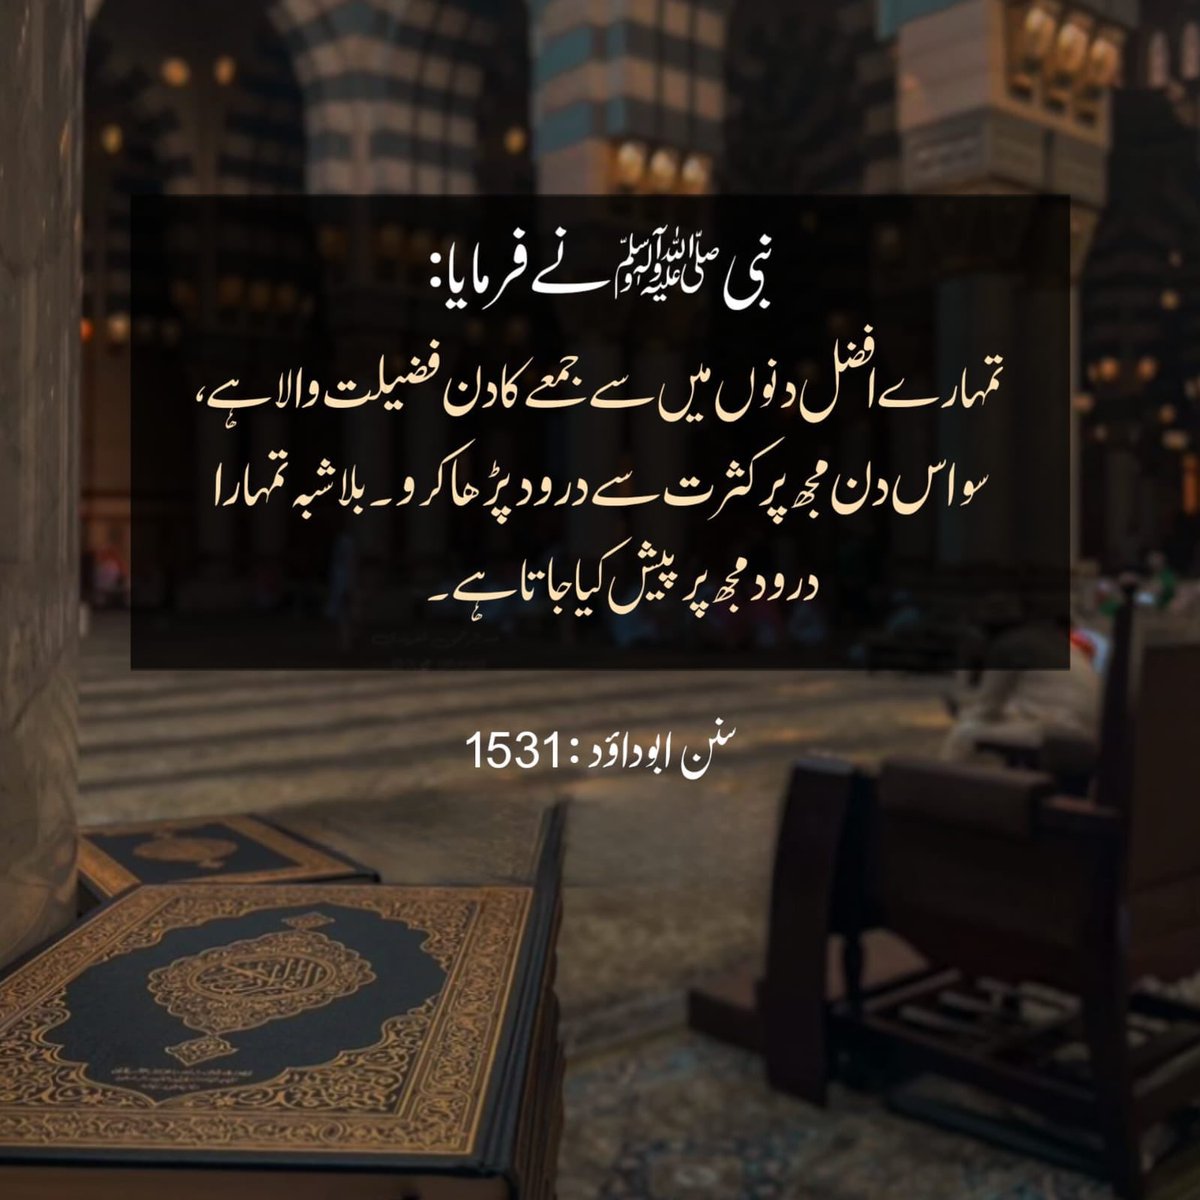 نبی ﷺ نے فرمایا:
تمہارے افضل دنوں میں سے جمعے کا دن فضیلت والا ہے،
سو اس دن مجھ پر کثرت سے درود پڑھا کرو۔ بلاشبہ تمہارا
درود مجھ پر پیش کیا جاتا ہے۔
سنن ابوداؤد: 1531